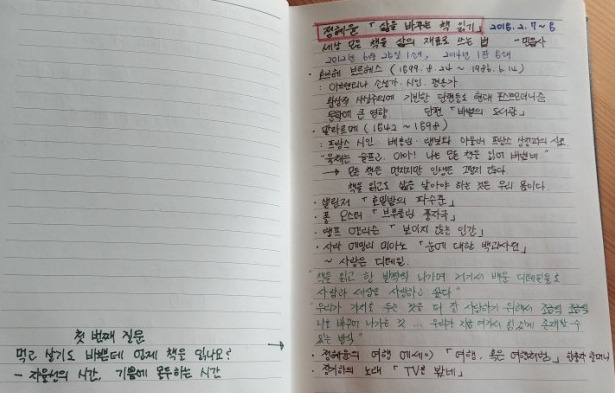 첫 번째 질문
먹고 살기도 바쁜데 언제 책은 읽나요?
- 자율성의 시간, 기쁨에 몰두하는 시간
정혜윤 「삶을 바꾸는 책 읽기」 2016. 2. 7~8
세상 모든 책을 삶의 재료로 쓰는 법 - 민음사
2012년 6월 25일 1쇄, 2014년 1월 5쇄
· 호르헤 보르헤스 (1899. 8. 24 ~ 1986. 6. 14)
: 아르헨티나 소설가·시인·평론가
환상적 사실주의에 기반한 단편들로 현대 포스트모더니즘
문학에 큰 영향 단편 「바벨의 도서관」
· 말라르메 (1842 ~ 1898)
: 프랑스 시인
"육체는 슬프고, 아아! 나는 모든 책을 읽어 버렸네"
→ 모든 책은 먼지지만 인생은 그렇지 않다.
책을 읽고도 삶을 살아야 하는 것은 우리 몸이다.
· 샐린저 「호밀밭의 파수꾼」
· 폴 오스터 「브루클린 풍자극」
· 랠프 엘리슨 「보이지 않는 인간」
· 시락 에밀의 미아노 「눈에 대한 백과사전」
~ 사랑은 디테일.
"책을 읽고 한 발짝씩 나아가며 거기서 배운 디테일들로
사람과 세상을 사랑하고 싶다"
"우리가 가치를 두는 것을 더 잘 사랑하기 위해서 조금씩 조금씩
나를 바꾸며 나가는 것 ... 우리가 지금 여기서 힘있게 존재할 수
있는 방식"
· 정혜윤의 여행 에세이 「여행, 혹은 여행처럼」
· 정차식의 노래 「TV를 봤네」